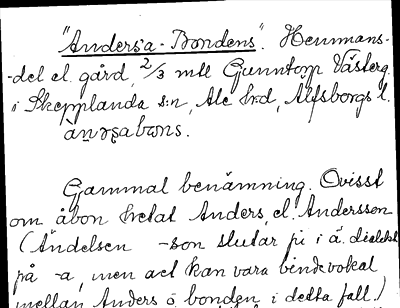 "Anders'a-Bondens". Hemmans-
-del el. gård, 2/3 mtl Gunntorp Västerg.
i Skepplanda s:n, Ale h:d, Älfsborgs l.
Gammal benämning. Ovisst
om åbon hetat Anders, el. Andersson
(Ändelsen -son slutar ju i ä. dialekt
på -a, men det kan vara bindevokal
mellan Anders o. bonden i detta fall)